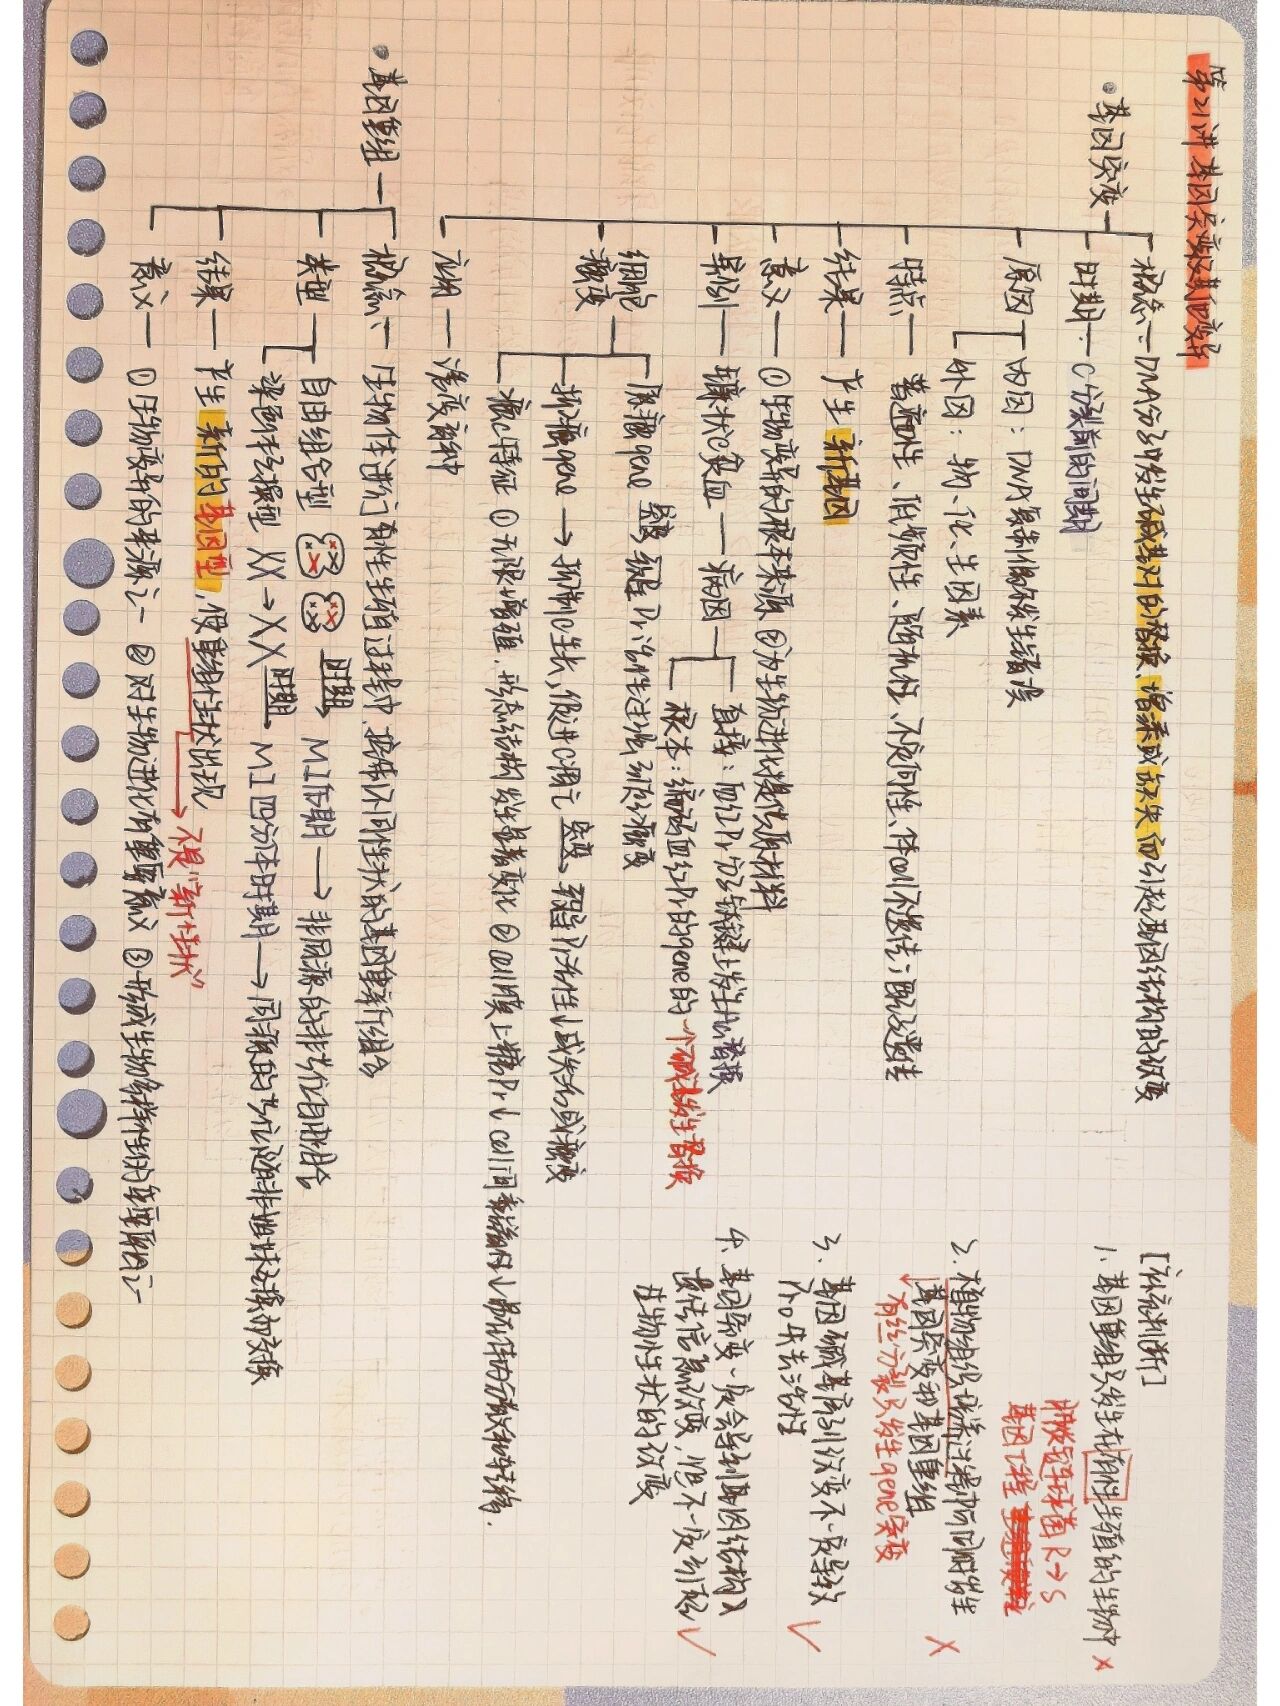 第21讲 基因突变及其他变异
• 基因突变
概念:DNA分子中发生碱基对的替换、增添或缺失而引起基因结构的改变
时期:C分裂前的间期
原因
内因:DNA复制偶尔发生错误
外因:物、化、生因素
特点 — 普遍性、低频性、随机性、不定向性
结果 — 产生新基因
意义 — ①生物变异的根本来源 ②为生物进化提供原材料
实例 — 镰状C贫血 — 病因
直接:血红Pr分子
根本:编码血红Pr的gene的一个碱基发生替换
细胞癌变
原癌gene 突变 Pr活性过强 引起癌变
抑癌gene → 抑制C生长、促进C凋亡 突变 Pr活性↓或失去
癌C特征 ①无限增殖,形态结构发生显著变化 ②cell膜上糖Pr↓ cell间黏着性↓易在体内分散和转移.
应用 — 诱变育种
• 基因重组
概念:在生物体进行有性生殖过程中,控制不同性状的基因重新组合
类型
自由组合型 时期→ MI后期 → 非同源的非等位自由组合
染色体互换型 XX→XX 时期→ MI四分体时期 → 同源的等位随非姐妹互换而交换
结果 — 产生新的基因型,使重组性状出现
→ 不是“新性状”
意义 — ①生物变异的来源之一 ②对生物进化有重要意义 ③形成生物多样性的重要原因之一
1. 基因重组只发生在有性生殖的生物中 ×
肺炎链球菌 R→S
基因工程
2. 植物组织培养过程中可同时发生
基因突变和基因重组 ×
有丝分裂只发生gene突变
3. 基因碱基序列改变不一定导致
Pro失去活性 ✓
4. 基因突变一定会导致基因结构及
遗传信息改变,但不一定引起
生物性状的改变 ✓